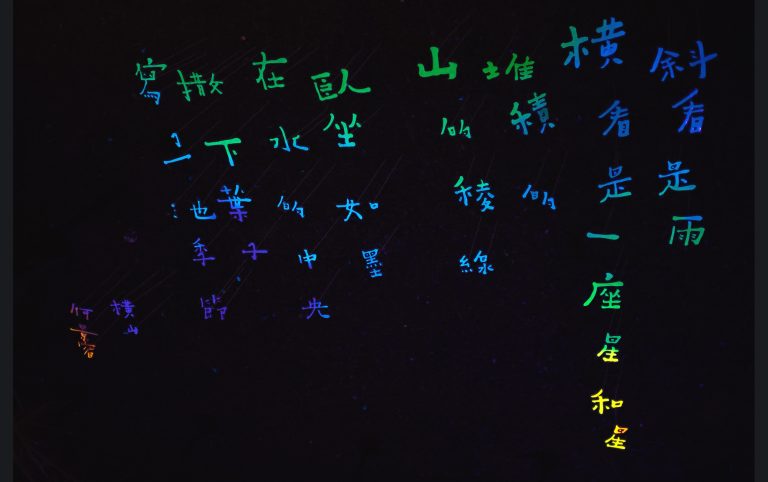 斜看是雨
橫看是一座星和星
堆積的
山的稜線
臥坐如墨
在水的中央
撒下葉子
寫一池季節
橫山
何景窗